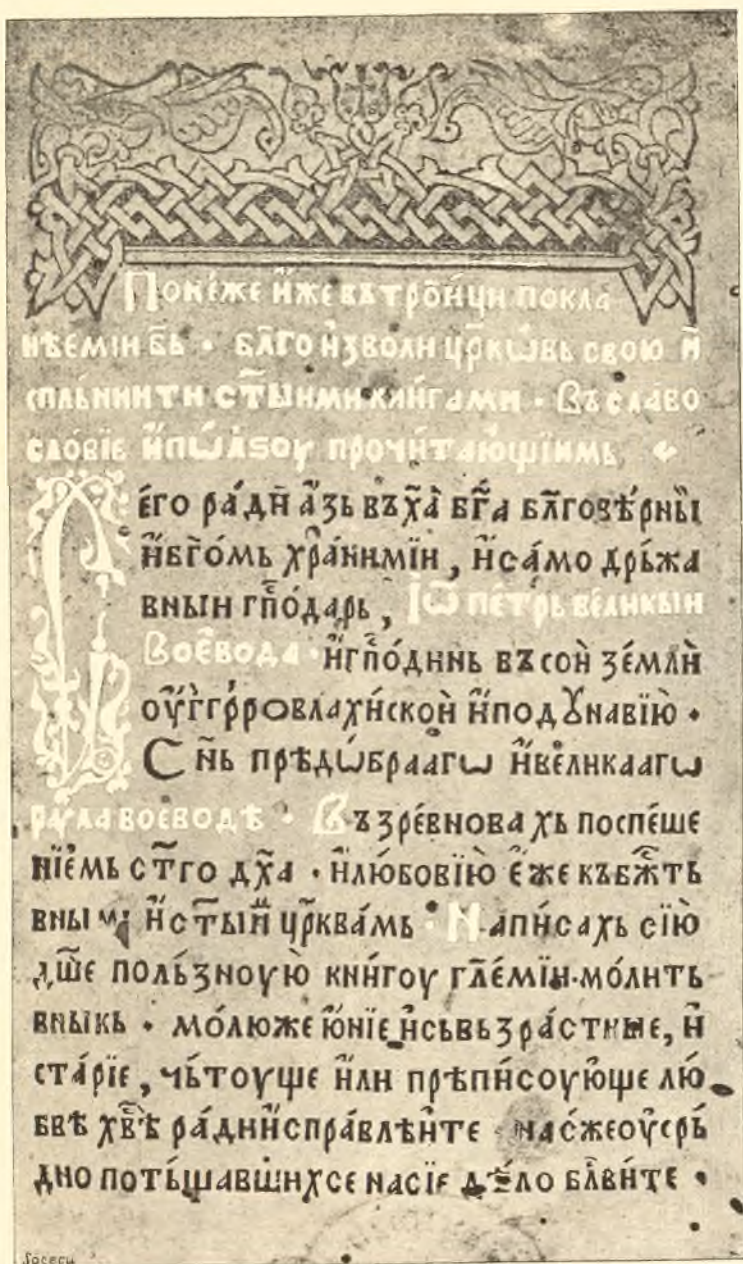 Поне́же и҆́же въ тро́ици покла
нѣ́еміи б҃ь · бл҃гоизволи цр҃ковь свою и҆
спльнити ст҃ыими книгами · Въ славо
сло́вїе и҆ пѡ́лѕоу прочи́тающїимь
Сего ра́ди а҆́зь въ х҃а б҃га бл҃говѣ́рныи
и҆ б҃го́мь хра́нимїи, и҆ са́мо дръ́жа
вныи гп҃о́дарь, Іѡ пе́трь вели́кыи
Вое́вода · и҆ гп҃о́динь въ сои зе́мли
оу҆́гг҃ровлахи́скои и҆ по дꙋнавїю ·
С н҃ь прѣдѡ́брааго и҆ вели́каагѡ
ра́ула воеводѣ · Въ зре́внова хь поспе́ше
нїе́мь ст҃го д҃ха · и҆ лю́бовїю е҆́же къ бж҃ть
вныма и҆ ст҃ыи цр҃квамь · Напи́сахь сїю
дш҃е поль́зноую кни́гоу гл҃емїи · мо́лить
вныкь · мо́люже ю҆́нїе, и҆ съвьзра́стные, и҆
ста́рїе, чь́тоуще и҆ли прѣпи́соующе лю́
бвѣ хв҃ѣ ра́ди и҆спра́влѣите · насже оу҆срь́
дно поть́щавшихсе на сїе дѣ́ло бл҃ви́те ·
Socecu